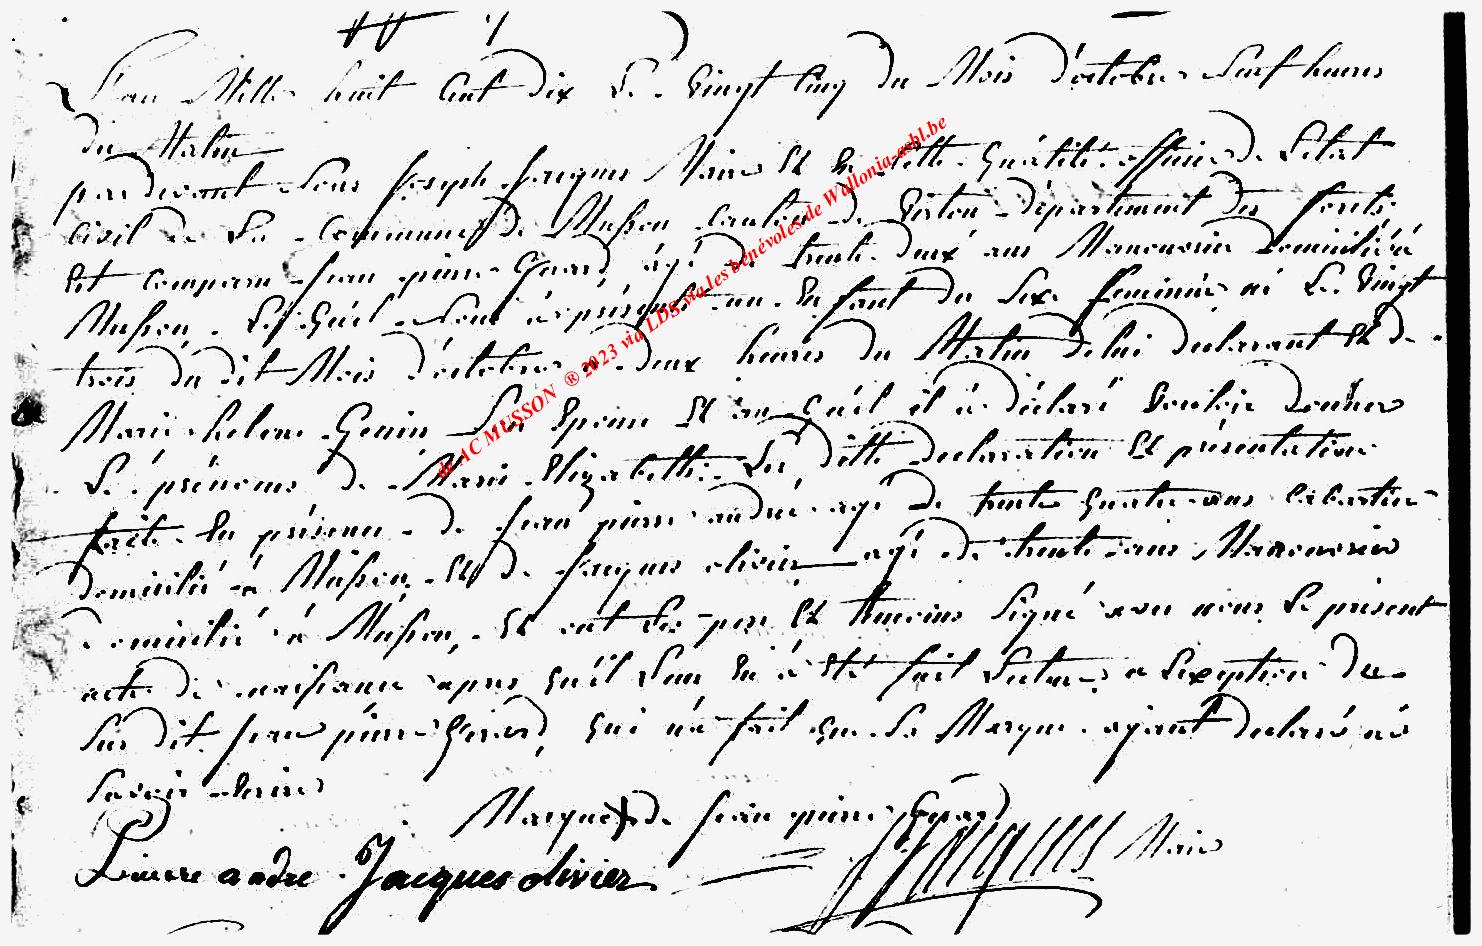 L'an Mille huit Cent dix Le Vingt Cinq du Mois d'octobre Neuf heures
du Matin
pardevant Nous Joseph Jacques Maire Et En Cette Qualité officier de L'etat
Civil de La Commune de Musson canton de Virton département des forêts
Est comparu Jean pierre Gerard âgé de trente deux ans Manouvrier domicilié à
Musson, Lequel Nous à présenté un Enfant du Sexe feminin né Le Vingt
trois du dit Mois d'octobre a deux heures du Matin de lui declarant Et de
Marie helene Genin Son Epouse Et au quel il a déclaré Vouloir donner
Le prénoms de Marie Elizabethe Les ditte declaration Et présentation
fait En présence de Jean pierre andré agé de trente quatre ans cabartier
domicilié à Musson, Et de Jacques olivier agé de trente ans Manouvrier
domicilié à Musson, Et ont Les pere Et temoins Signé avec nous Le présent
acte de naissance apres qu'il Leur En à Eté fait Lecture a Lexeption du
Sus dit Jean pierre Gerard, qui n'a fait que Sa Marque ayant declaré ne
Savoir Ecrire
Marque de Jean pierre Gerard
Pierre andre Jacques olivier J Jacques Maire
de AC MUSSON ® 2023 via LDS via les bénévoles de Wallonia-asbl.be